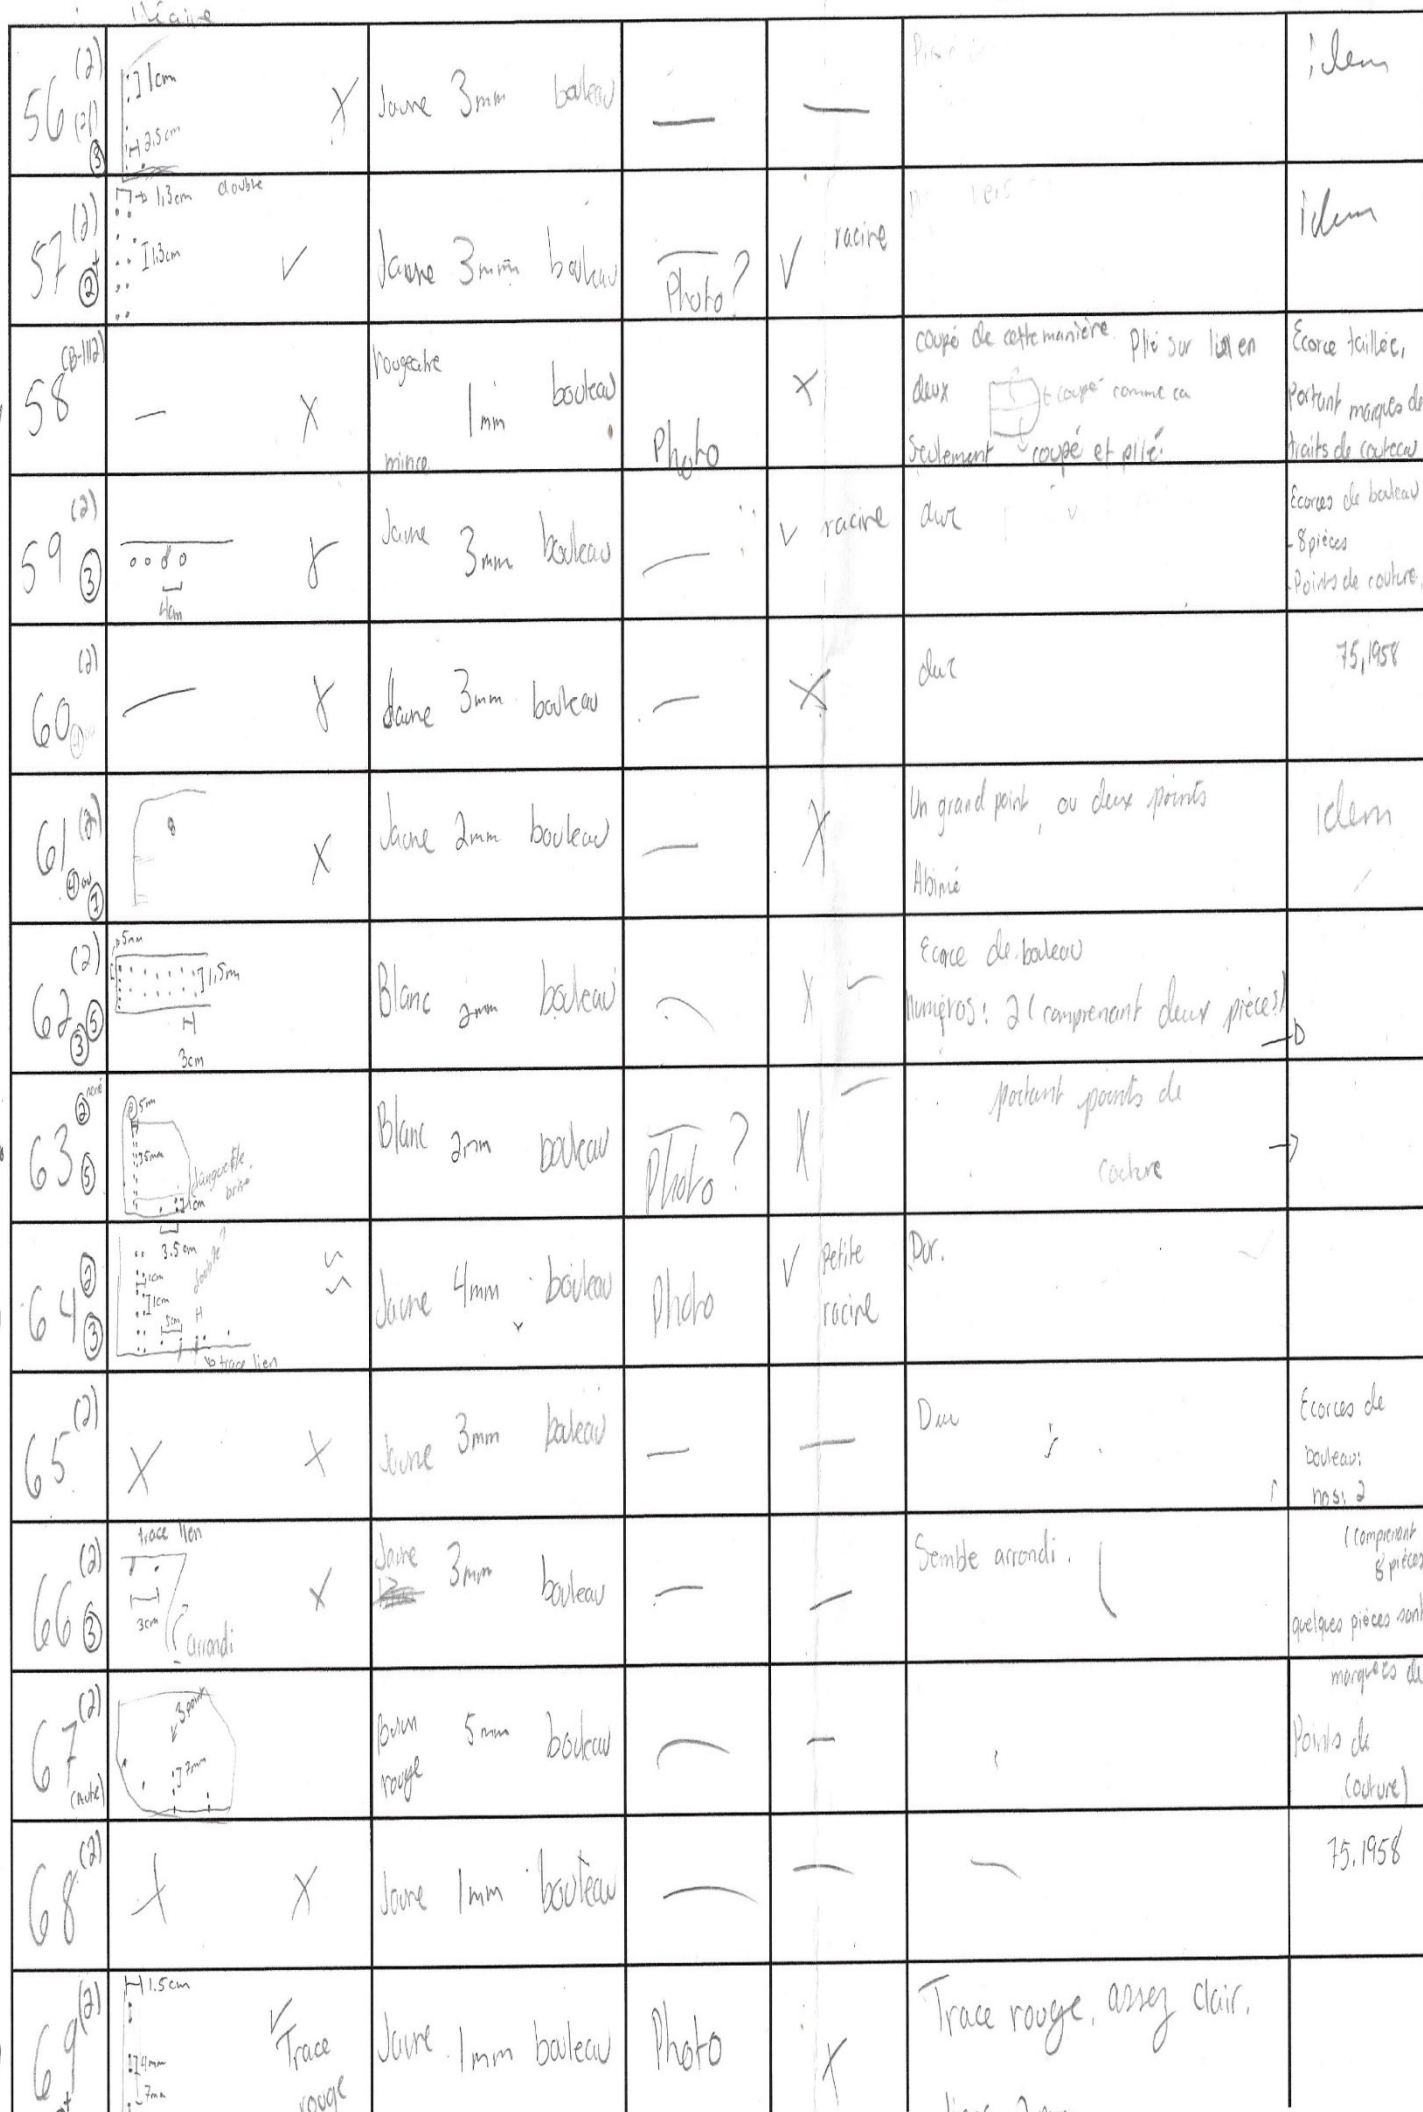 56 (2) (21) ③
1cm
2.5cm
X
Jaune 3mm bouleau
—
—
idem
57 (2) ②
1,3cm double
1.3cm
✓
Jaune 3mm bouleau
Photo?
✓ racine
idem
58 (B-112)
—
X
rougeatre
1mm bouleau
mince
Photo
X
coupé de cette manière. Plié sur lien en
deux
t coupé comme ca
seulement coupé et plié.
Ecorce taillée,
Portant marques de
traits de couteau
59 (2) ③
4cm
Jaune 3mm bouleau
—
✓ racine
dur
Ecorces de bouleau
- 8 pièces
- Points de couture.
60 (2)
—
Jaune 3mm bouleau
—
X
dur
75,1958
61 (2)
④ ou ⑦
X
Jaune 2mm bouleau
—
X
Un grand point, ou deux points
Abimé
idem
62 (2) ③ ⑤
5mm
1,5mm
3cm
Blanc 2mm bouleau
X
Ecorce de bouleau
numéros: 2 (comprenant deux pièces)
63 ② ⑤
5mm
35mm
1cm
brisé
Blanc 2mm bouleau
Photo?
X
portant points de
couture
64 ② ③
3.5cm
double
1cm
1cm
3cm
trace lien
Jaune 4mm bouleau
Photo
✓ petite
racine
Dur.
65 (2)
X
X
Jaune 3mm bouleau
—
—
Dur
Ecorces de
bouleau:
nos: 2
66 (2) ③
trace lien
3cm
arrondi
X
Jaune
3mm bouleau
—
—
Semble arrondi.
(comprenant
8 pièces
quelques pièces sont
67 (2)
(Autre)
3 points
7mm
Brun
rouge
5mm bouleau
—
—
marquées de
Points de
couture)
68 (2)
X
X
Jaune 1mm bouleau
—
—
—
75.1958
69 (2)
1.5cm
4mm
7mm
✓
Trace
rouge
Jaune 1mm bouleau
Photo
X
Trace rouge, assez clair.